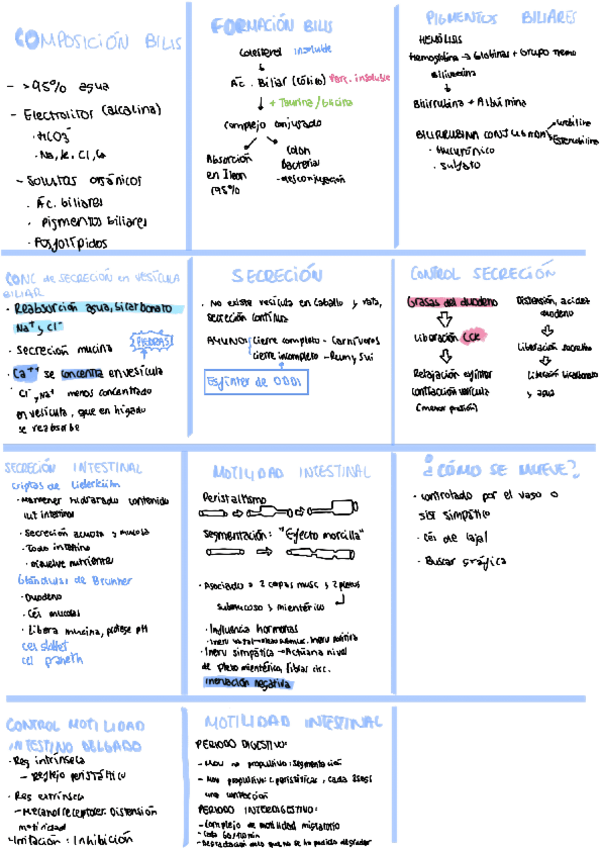 COMPOSICIÓN BILIS
- >95% agua
- Electrolitos (alcalina)
· HCO3-
· Na, K, Cl, Ca
- Solutos orgánicos
· Ác. biliares
· Pigmentos biliares
· Fosfolípidos
FORMACIÓN BILIS
Colesterol insoluble
Ác. Biliar (cólico) Parc. insoluble
+ Taurina/Glicina
Complejo conjugado
Absorción en Ileon (95%)
Colon Bacterias
- desconjugación
PIGMENTOS BILIARES
HEMÓLISIS
Hemoglobina → Globinas + Grupo hemo
Biliverdina
Bilirrubina + Albúmina
BILIRRUBINA CONJUGADA
· Glucurónico
· Sulfato
CONC de SECRECIÓN en VESÍCULA
BILIAR
· Reabsorción agua, bicarbonato
Na+ y Cl-
PIEDRAS
· Secreción mucina
· Ca++ se concentra en vesícula
Cl-, Na+ menos concentrado
en vesícula, que en hígado
se reabsorbe
SECRECIÓN
· No existe vesícula en caballo y rata,
secreción continua
AYUNO cierre completo - Carnívoros
cierre incompleto - Rum y Sui
Esfínter de ODDI
CONTROL SECRECIÓN
Grasas del duodeno
Liberación CCK
Relajación esfínter
contracción vesícula
(menor presión)
Distensión, acidez
duodeno
Liberación secretina
Liberación bicarbonato
y agua
SECRECIÓN INTESTINAL
Criptas de Lieberkühn
· Mantener hidratado contenido
int intestinal
· Secreción acuosa y mucosa
· Todo intestino
· disuelve nutrientes
Glándulas de Brunner
· Duodeno
· Cél mucosas
· Libera mucina, protege pH
cel paneth
MOTILIDAD INTESTINAL
Peristaltismo
Segmentación: "Efecto morcilla"
· Asociado a 2 capas musc y 2 plexos
submucoso y mientérico
· Influencia hormonas
· Inerv simpática → Actúa a nivel
de plexo mientérico, fibras circ.
inervación negativa
¿CÓMO SE MUEVE?
· Controlado por el vago o
sist simpático
· Cél de Cajal
· Buscar gráfica
CONTROL MOTILIDAD
INTESTINO DELGADO
· Reg intrínseca
- Reflejo peristáltico
· Reg extrínseca
- Mecanorreceptores: Distensión
motilidad
- Irritación: Inhibición
MOTILIDAD INTESTINAL
PERIODO DIGESTIVO:
- Mov no propulsivo: Segmentación
- Mov propulsivo: c. peristálticas, cada
una contracción
PERIODO INTERDIGESTIVO:
- Complejo de motilidad migratorio
- Degradación de lo que no se ha podido degradar